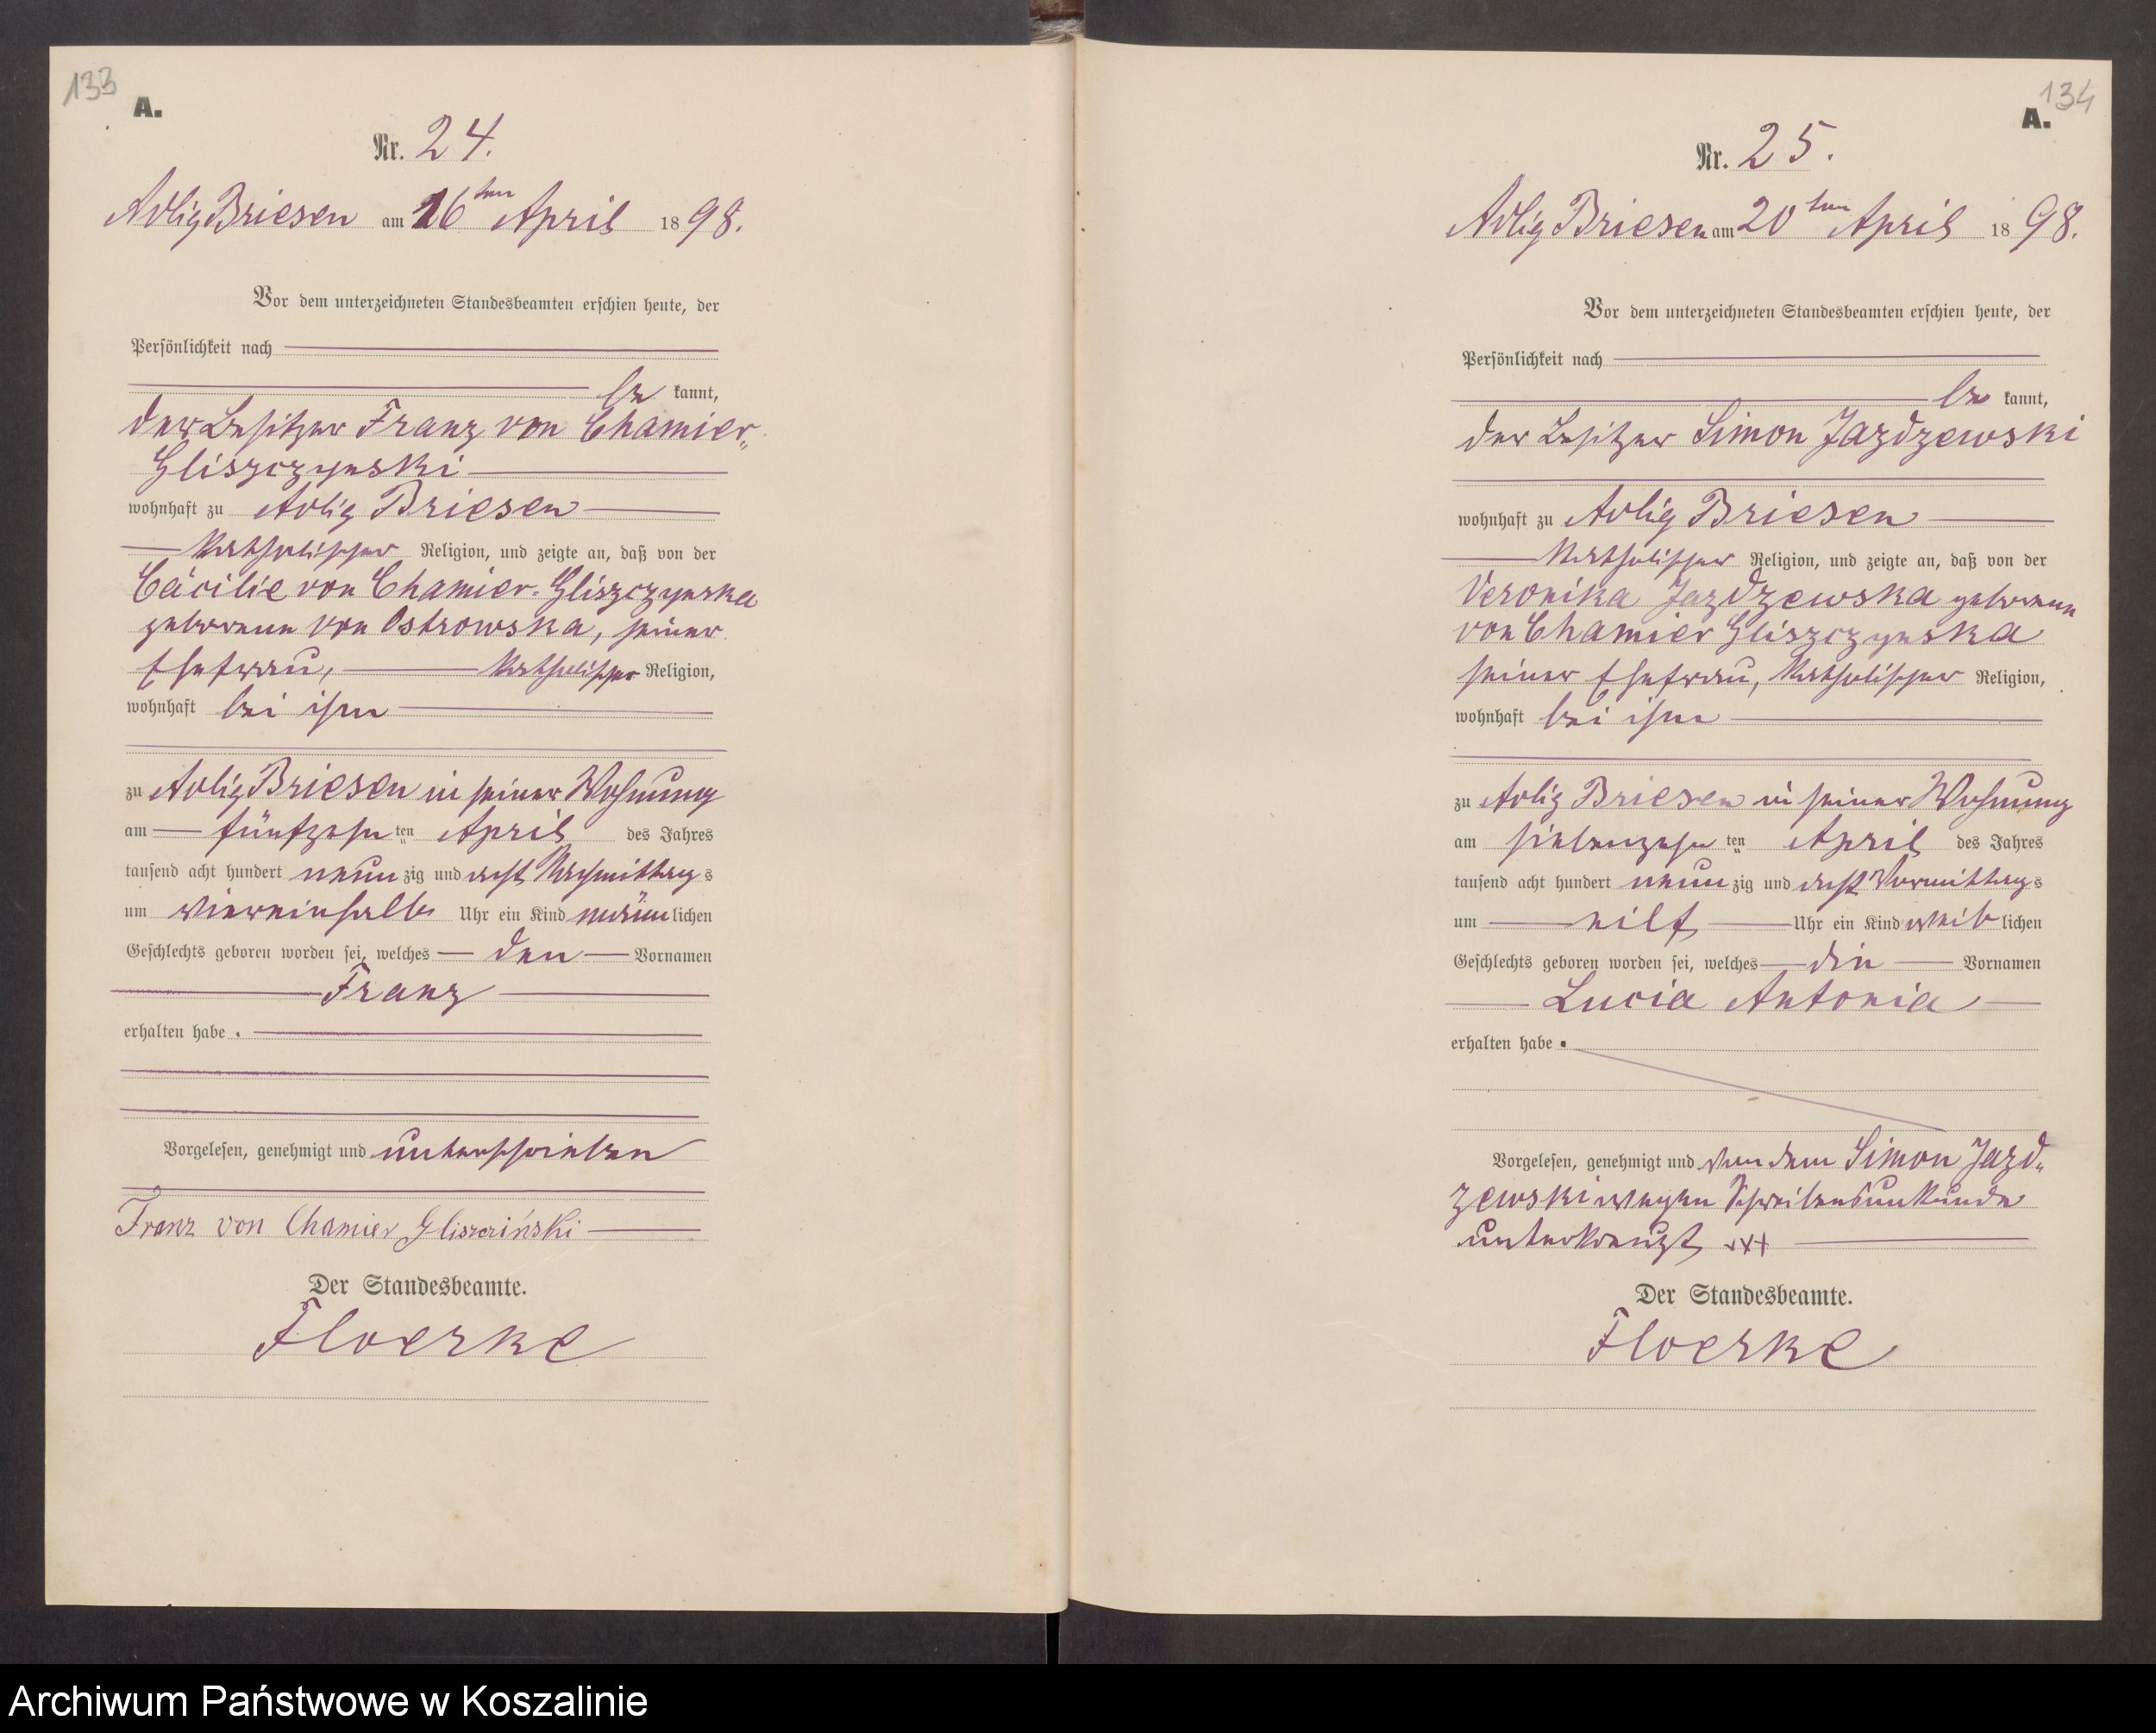 133
A.
Nr. 24.
Adlig Briesen am 16ten April 1898.
Vor dem unterzeichneten Standesbeamten erschien heute, der
Persönlichkeit nach
bekannt,
der Besitzer Franz von Chamier-
Gliszczynski
wohnhaft zu Adlig Briesen
katholischer Religion, und zeigte an, daß von der
Cäcilie von Chamier-Gliszczynska
geborenen von Ostrowska, seiner
Ehefrau, katholischer Religion,
wohnhaft bei ihm
zu Adlig Briesen in seiner Wohnung
am fünfzehnten April des Jahres
tausend acht hundert neunzig und acht Nachmittags
um viereinhalb Uhr ein Kind männlichen
Geschlechts geboren worden sei, welches den Vornamen
Franz
erhalten habe.
Vorgelesen, genehmigt und unterschrieben
Franz von Chamier Gliszcziński
Der Standesbeamte.
Floerke
134
A.
Nr. 25.
Adlig Briesen am 20ten April 1898.
Vor dem unterzeichneten Standesbeamten erschien heute, der
Persönlichkeit nach
bekannt,
der Besitzer Simon Jazdzewski
wohnhaft zu Adlig Briesen
katholischer Religion, und zeigte an, daß von der
Veronika Jazdzewska geborenen
von Chamier Gliszczynska
seiner Ehefrau, katholischer Religion,
wohnhaft bei ihm
zu Adlig Briesen in seiner Wohnung
am siebenzehnten April des Jahres
tausend acht hundert neunzig und acht Vormittags
um eilf Uhr ein Kind weiblichen
Geschlechts geboren worden sei, welches die Vornamen
Lucia Antonia
erhalten habe.
Vorgelesen, genehmigt und von dem Simon Jazd-
zewski wegen Schreibensunkunde
unterkreuzt +++
Der Standesbeamte.
Floerke
Archiwum Państwowe w Koszalinie